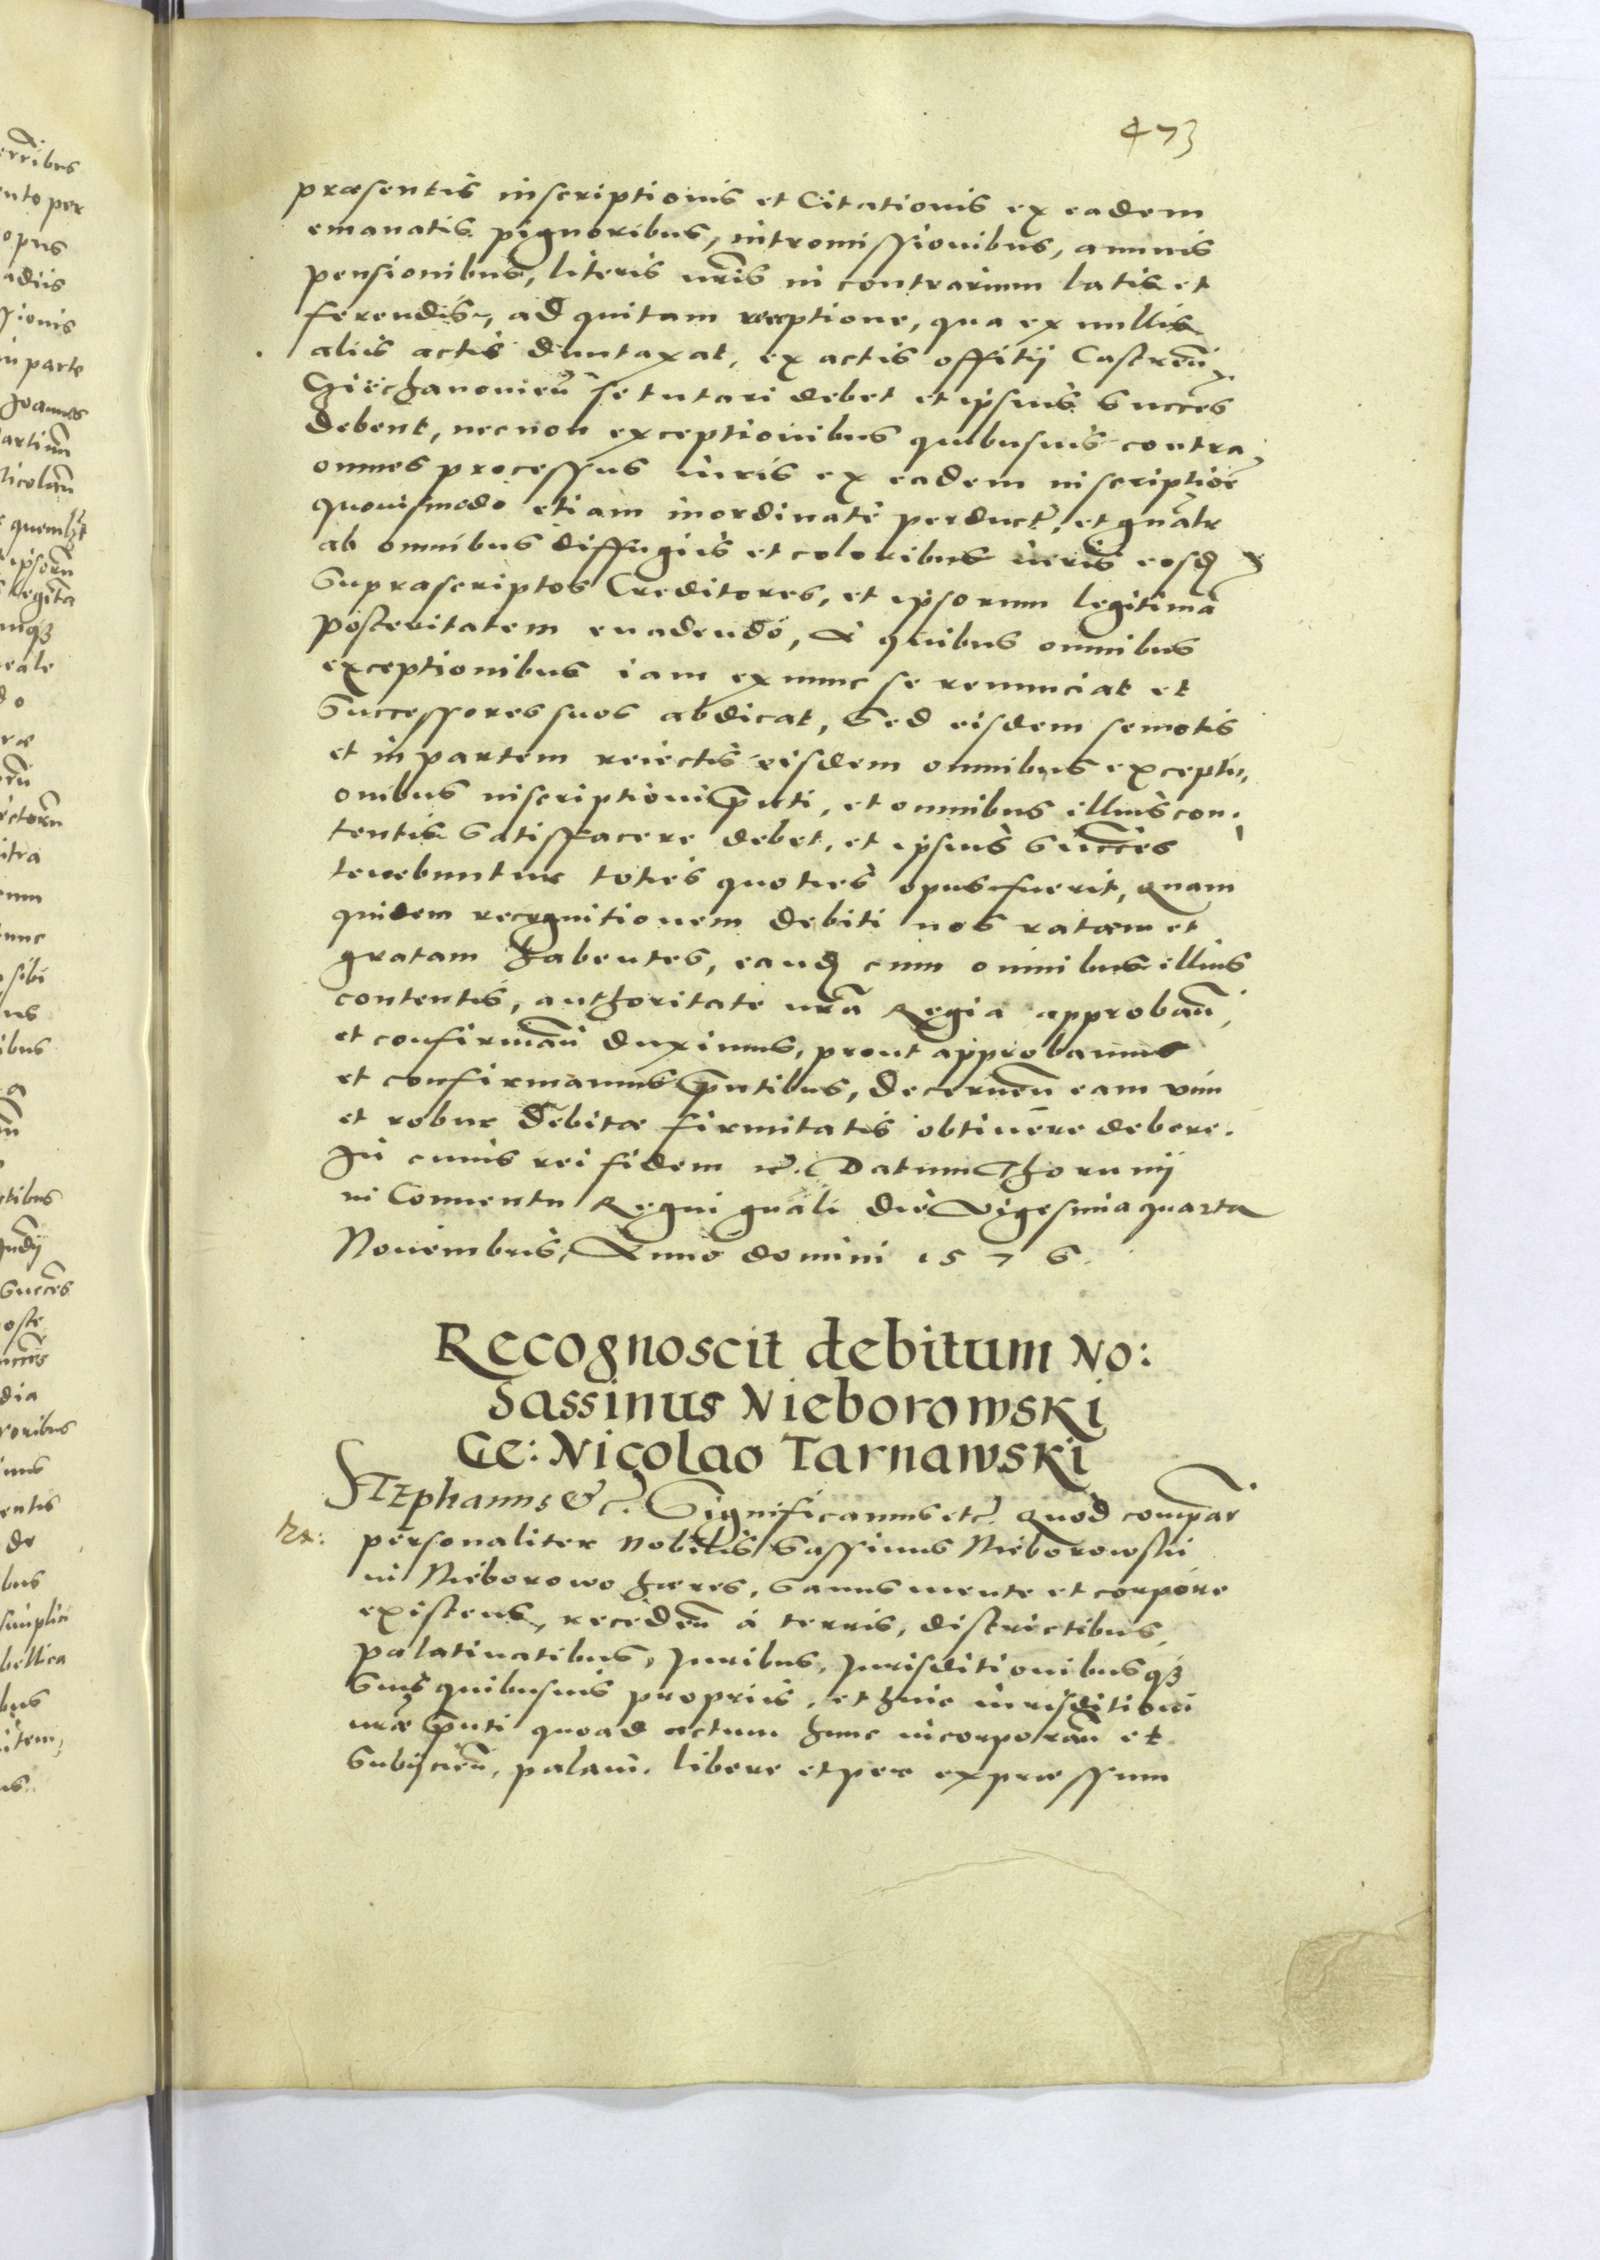 473
præsentis inscriptionis et Citationis ex eadem
emanatis pignoribus, intromissionibus, annuis
pensionibus, literis nr̃is in contrarium latis et
ferendis, ad quitam receptione, qua ex nullis
aliis actis duntaxat, ex actis offitij Castreñ
Ciechanovieñ se tutari debet et ipsius Succẽs
debent, necnon exceptionibus quibusuis contra
omnes processus iuris ex eadem inscriptiõe
quouismodo etiam inordinate perduct̃, et gnãlr
ab omnibus diffugiis et coloribus iuris eosd
Suprascriptos Creditores, et ipsorum legitimã
posteritatem euadendo, A quibus omnibus
exceptionibus iam ex nunc se renunciat et
Successores suos abdicat, Sed eisdem semotis
et in partem reiectis eisdem omnibus excepti,
onibus inscriptioni pñti, et omnibus illius con,
tentis Satisfacere debet, et ipsius Succẽs
tenebuntur toties quoties opus fuerit, Quam
quidem recognitionem debiti nos ratam et
gratam habentes, eand cum omnibus illius
contentis, authoritate nr̃a Regia approbañ
et confirmañ duximus, prout approbamus
et confirmamus pñtibus, decerneñ eam vim
et robur debitæ firmitatis obtinere debere.
In cuius rei fidem etc̃. Datum Thorunij
in Conuentu Regni gñali die Vigesima quarta
Nouembris, Anno domini 1576.
Recognoscit debitum No:
Sassinus Nieborowski
Ge: Nicolao Tarnawski
Stephanus &c. Significamus etc̃. Quod compar̃
Rx:
personaliter Nobilis Sassinus Nieborowski
in Nieborowo hæres, sanus mente et corpore
existens, recedeñ à terris, districtibus,
palatinatibus, Juribus, Jurisditionibusq3
Suis quibusuis propriis, et huic iurisditioni
nr̃æ pñti quoad actum hunc incorporañ et
Subijcieñ, palam, libere et per expræssum